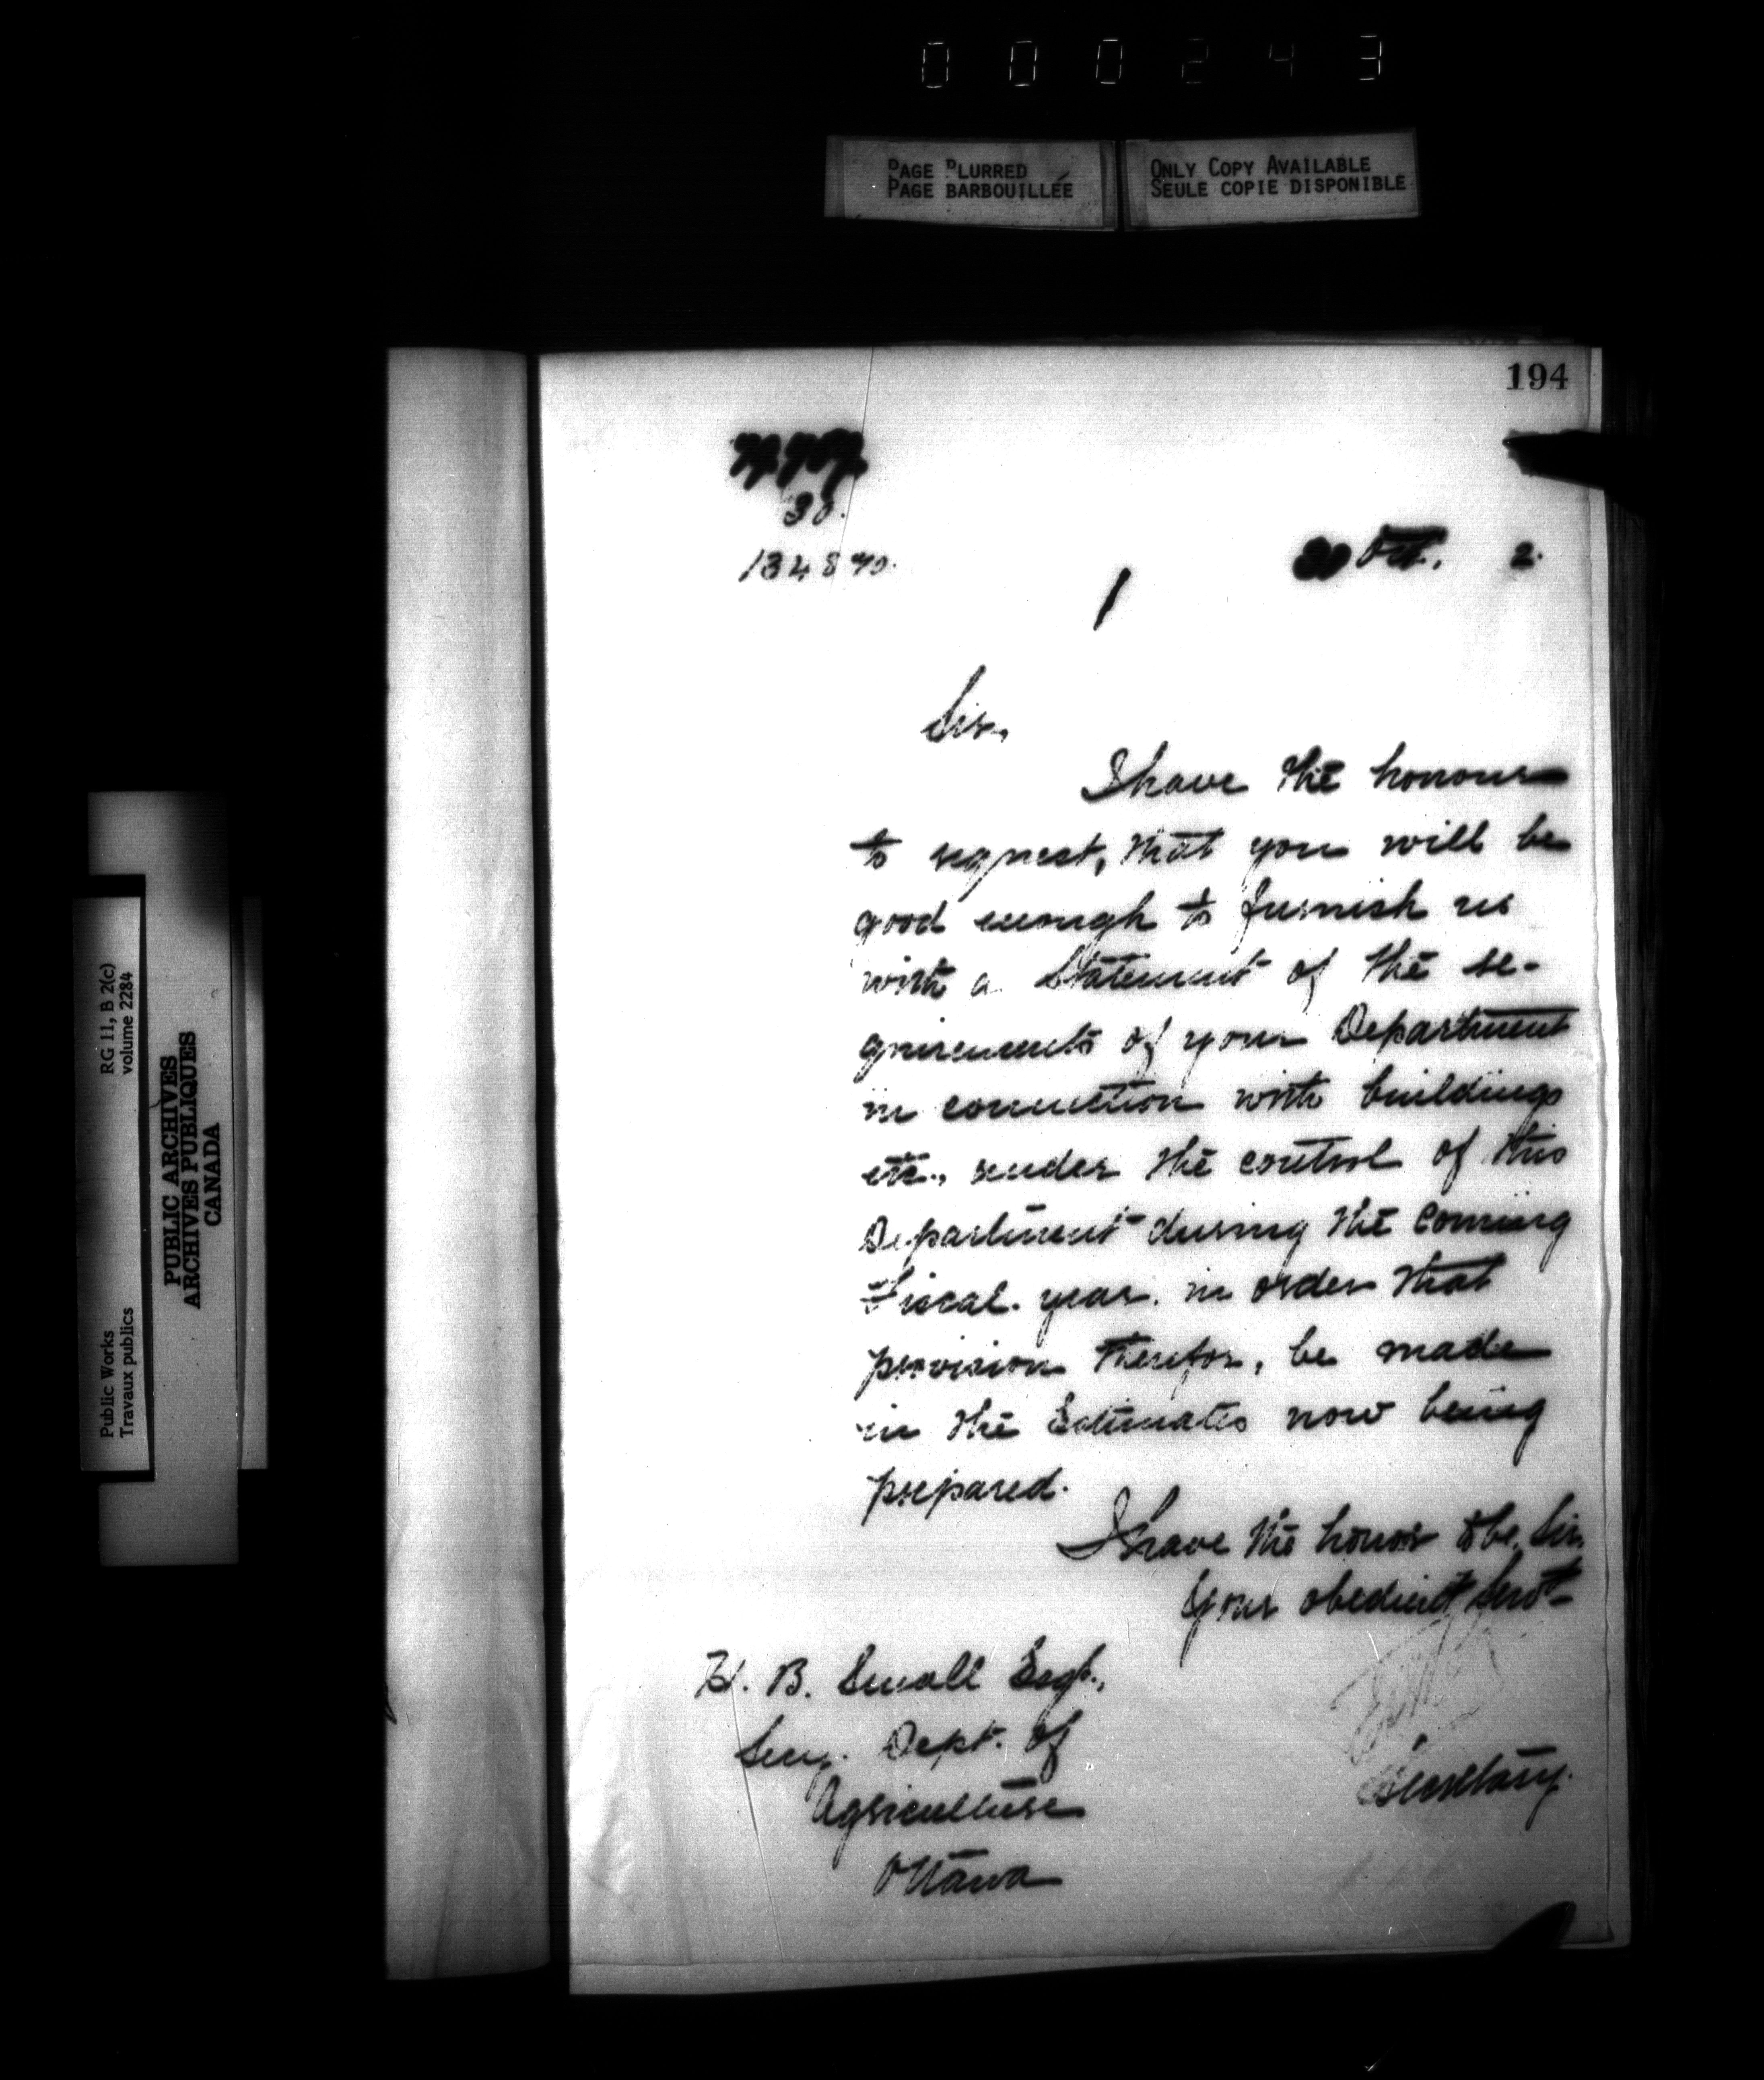 000243
PAGE BLURRED
PAGE BARBOUILLÉE
ONLY COPY AVAILABLE
SEULE COPIE DISPONIBLE
194
30.
134890.
Oct. 2.
Sir,
I have the honour
to request, that you will be
good enough to furnish us
with a Statement of the re-
quirements of your Department
in connection with buildings
etc., under the control of this
Department during the coming
Fiscal year in order that
provision therefor, be made
in the Estimates now being
prepared.
I have the honor to be, Sir,
Your obedient Servt
Secretary.
H. B. Small Esq.,
Secy. Dept. of
Agriculture
Ottawa
Public Works
Travaux publics
RG 11, B 2(c)
volume 2284
PUBLIC ARCHIVES
ARCHIVES PUBLIQUES
CANADA